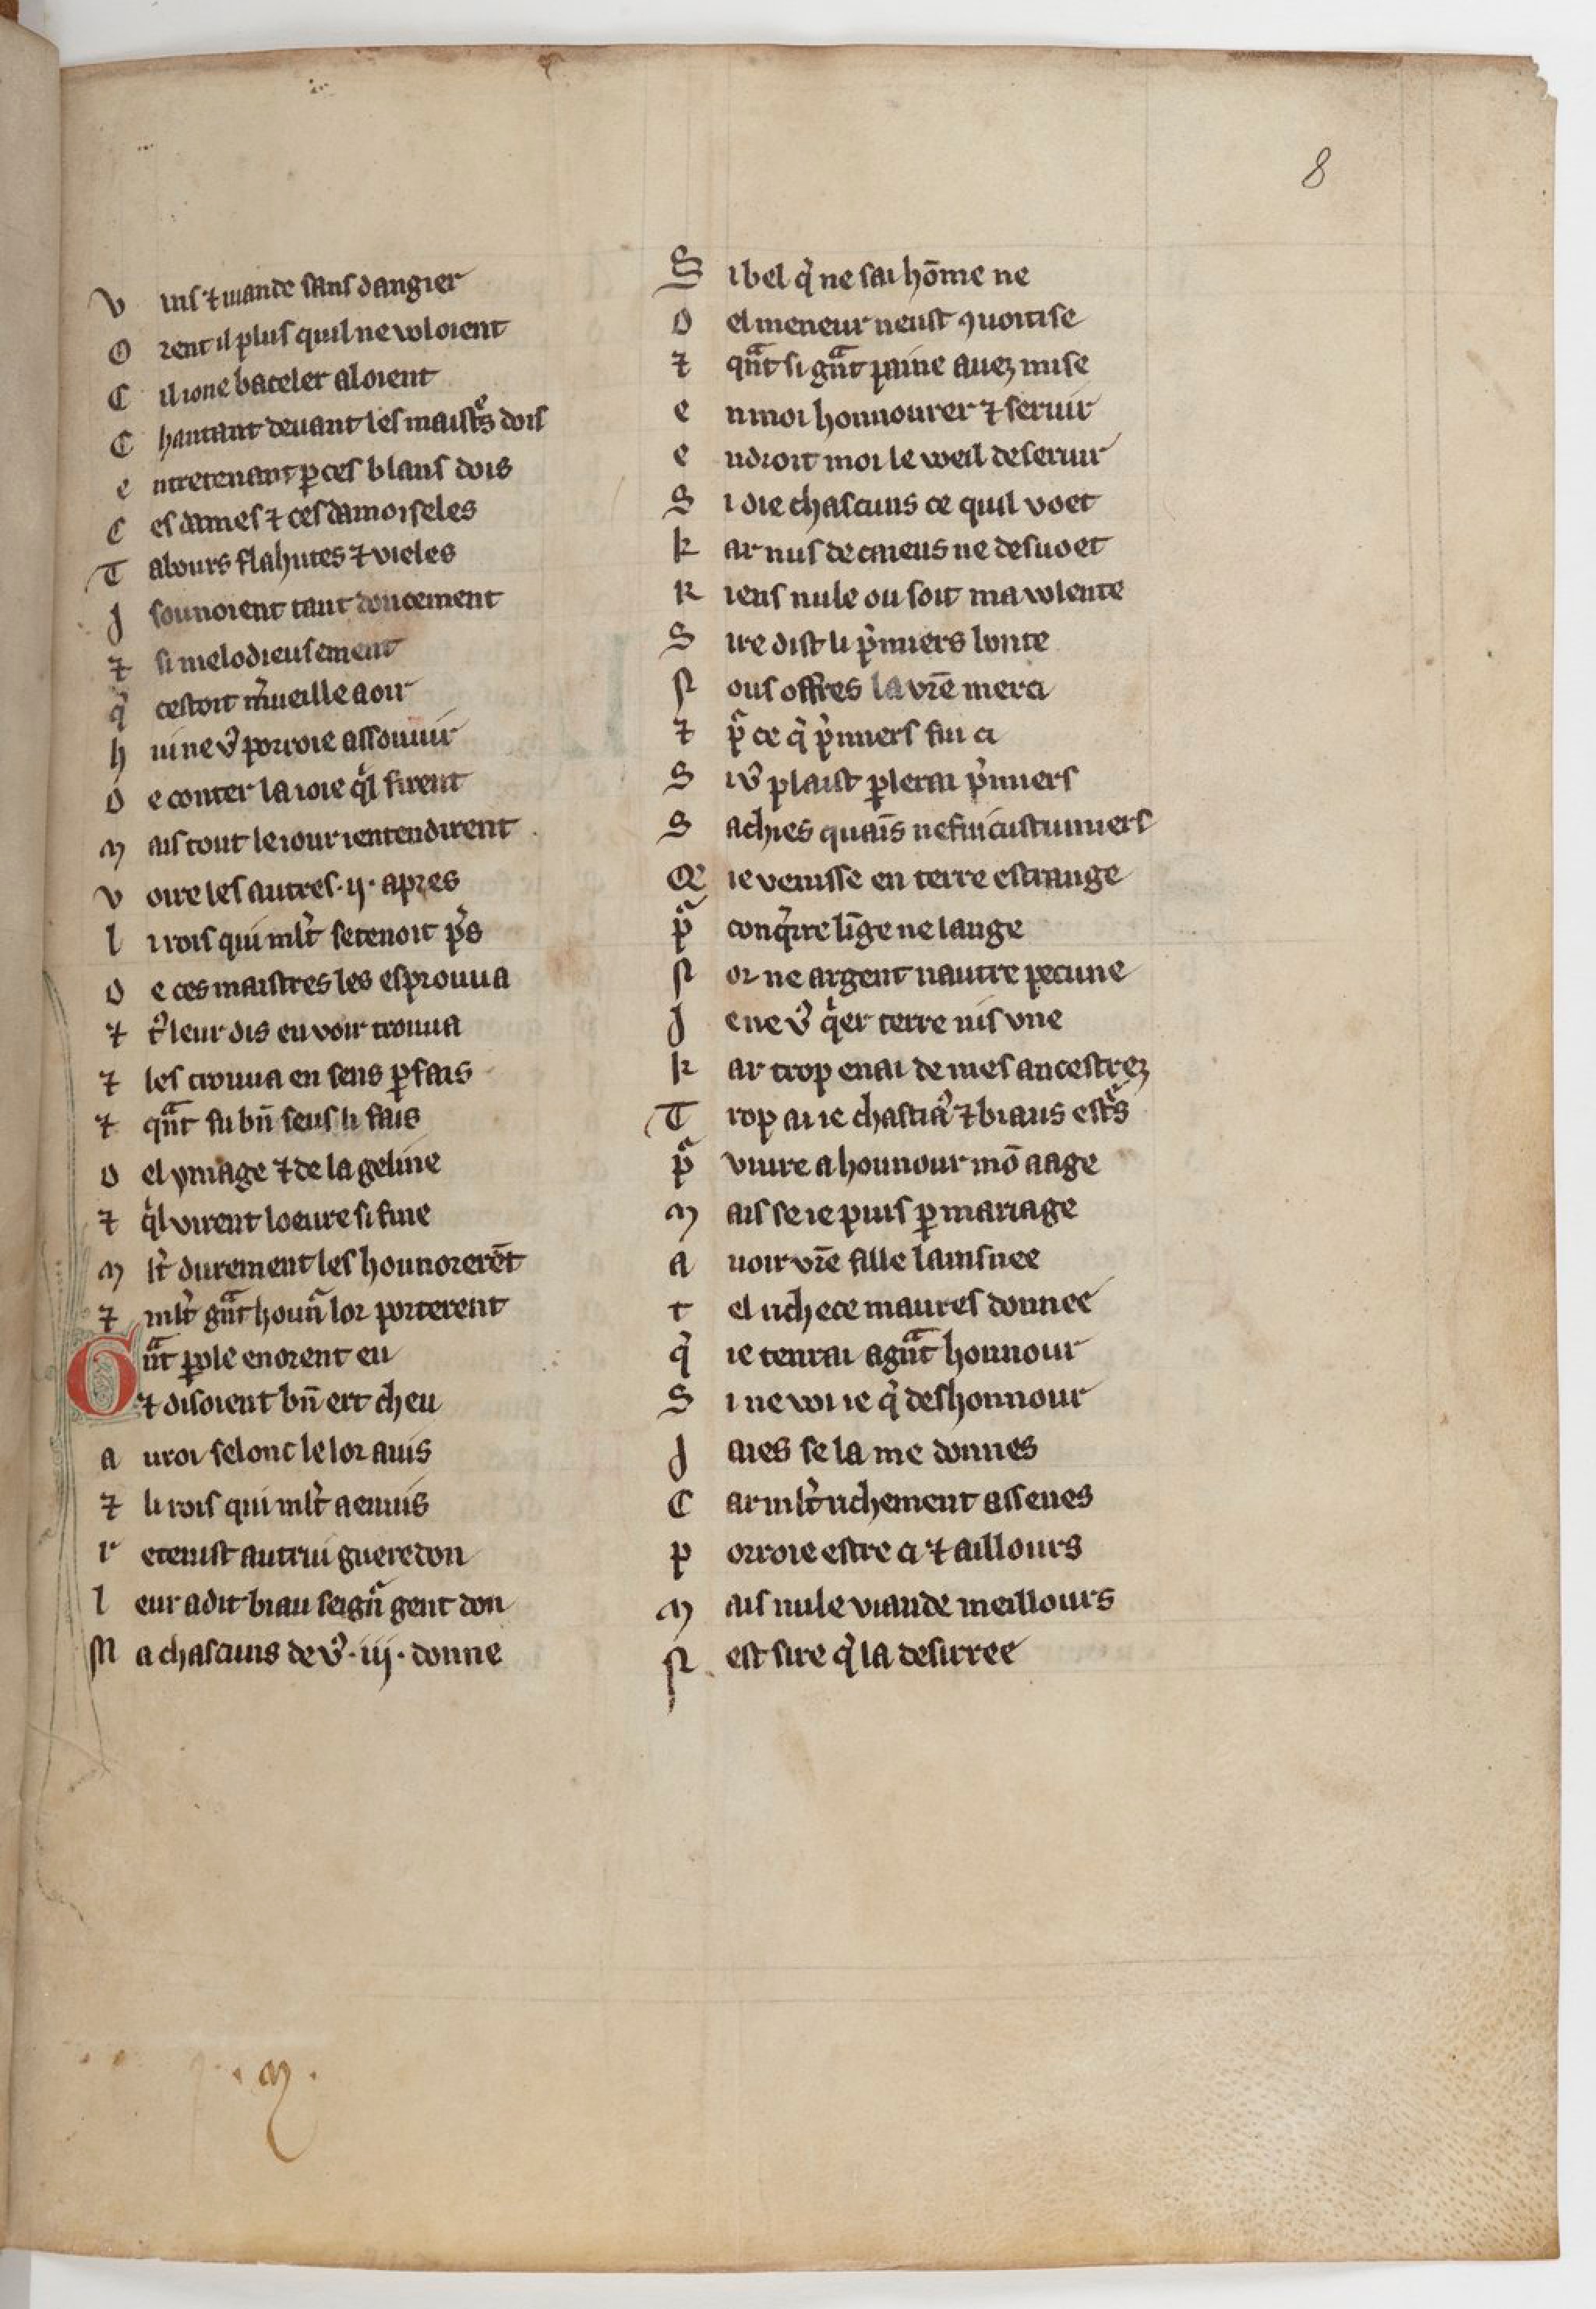 8
V ins ⁊ uiande sans dangier
O rent il plus quil ne voloient
C il ione baceler aloient
C hantant deuant les maistͤs dois
e ntretenant ꝑ ces blans dois
C es dames ⁊ ces damoiseles
T abours flahutes ⁊ vieles
J sounoient tant doucement
⁊ si melodieusement
q̓ cestoit m̓ueille a oir
h ui ne v9 porroie assouuir
D e conter la ioie q̓l firent
M ais tout le iour i entendirent
V oire les autres .ij. apres
l i rois qui ml't se tenoit p̓s
D e ces maistres les esprouua
⁊ t9 leur dis en voir trouua
⁊ les trouua en sens ꝑfais
⁊ qͣnt fu bn̄ seus li fais
D el ymage ⁊ de la geline
⁊ q̓l virent loeure si fine
M l't durement les hounorerēt
⁊ ml't gͣnt houn̄ lor porterent
Gͣnt ꝑole en orent eu
⁊ disoient bn̄ ert cheu
a u roi selonc le lor auis
⁊ li rois qui ml't a enuis
r etenist autrui gueredon
l eur a dit biau seign̄ gent don
M a chascuns de v9 .iij. donne
S i bel q̓ ne sai hōme ne
D el meneur neust ꝯuoitise
⁊ qͣnt si gͣnt paine auez mise
e n moi hounourer ⁊ seruir
e ndroit moi le weil deseruir
S i die chascuns ce quil voet
k ar nus de caiens ne desuoet
R iens nule ou soit ma volente
S ire dist li p̓miers lonte
N ous offres la vr̄e merci
⁊ pͬ ce q̓ p̓miers fui ci
S i v9 plaist ꝑlerai p̓miers
S achies quains ne fui custumiers
Q̄ ie venisse en terre estrange
pͬ conq̓rre linge ne lange
N or ne argent nautre pecune
J e ne v9 q̓er terre nis vne
k ar trop en ai de mes ancestrez
T rop ai ie chastiaͧ ⁊ biaus estͤs
pͬ viure a hounour mō aage
M ais se ie puis ꝑ mariage
a uoir vr̄e fille lainsnee
t el richece maures donnee
q̓ ie tenrai a gͣnt hounour
S i ne voi ie q̓ deshonnour
J aies se la me donnes
C ar ml't richement assenes
p orroie estre ci ⁊ aillours
M ais nule viande meillours
N est sire q̓ la desirree
.m.